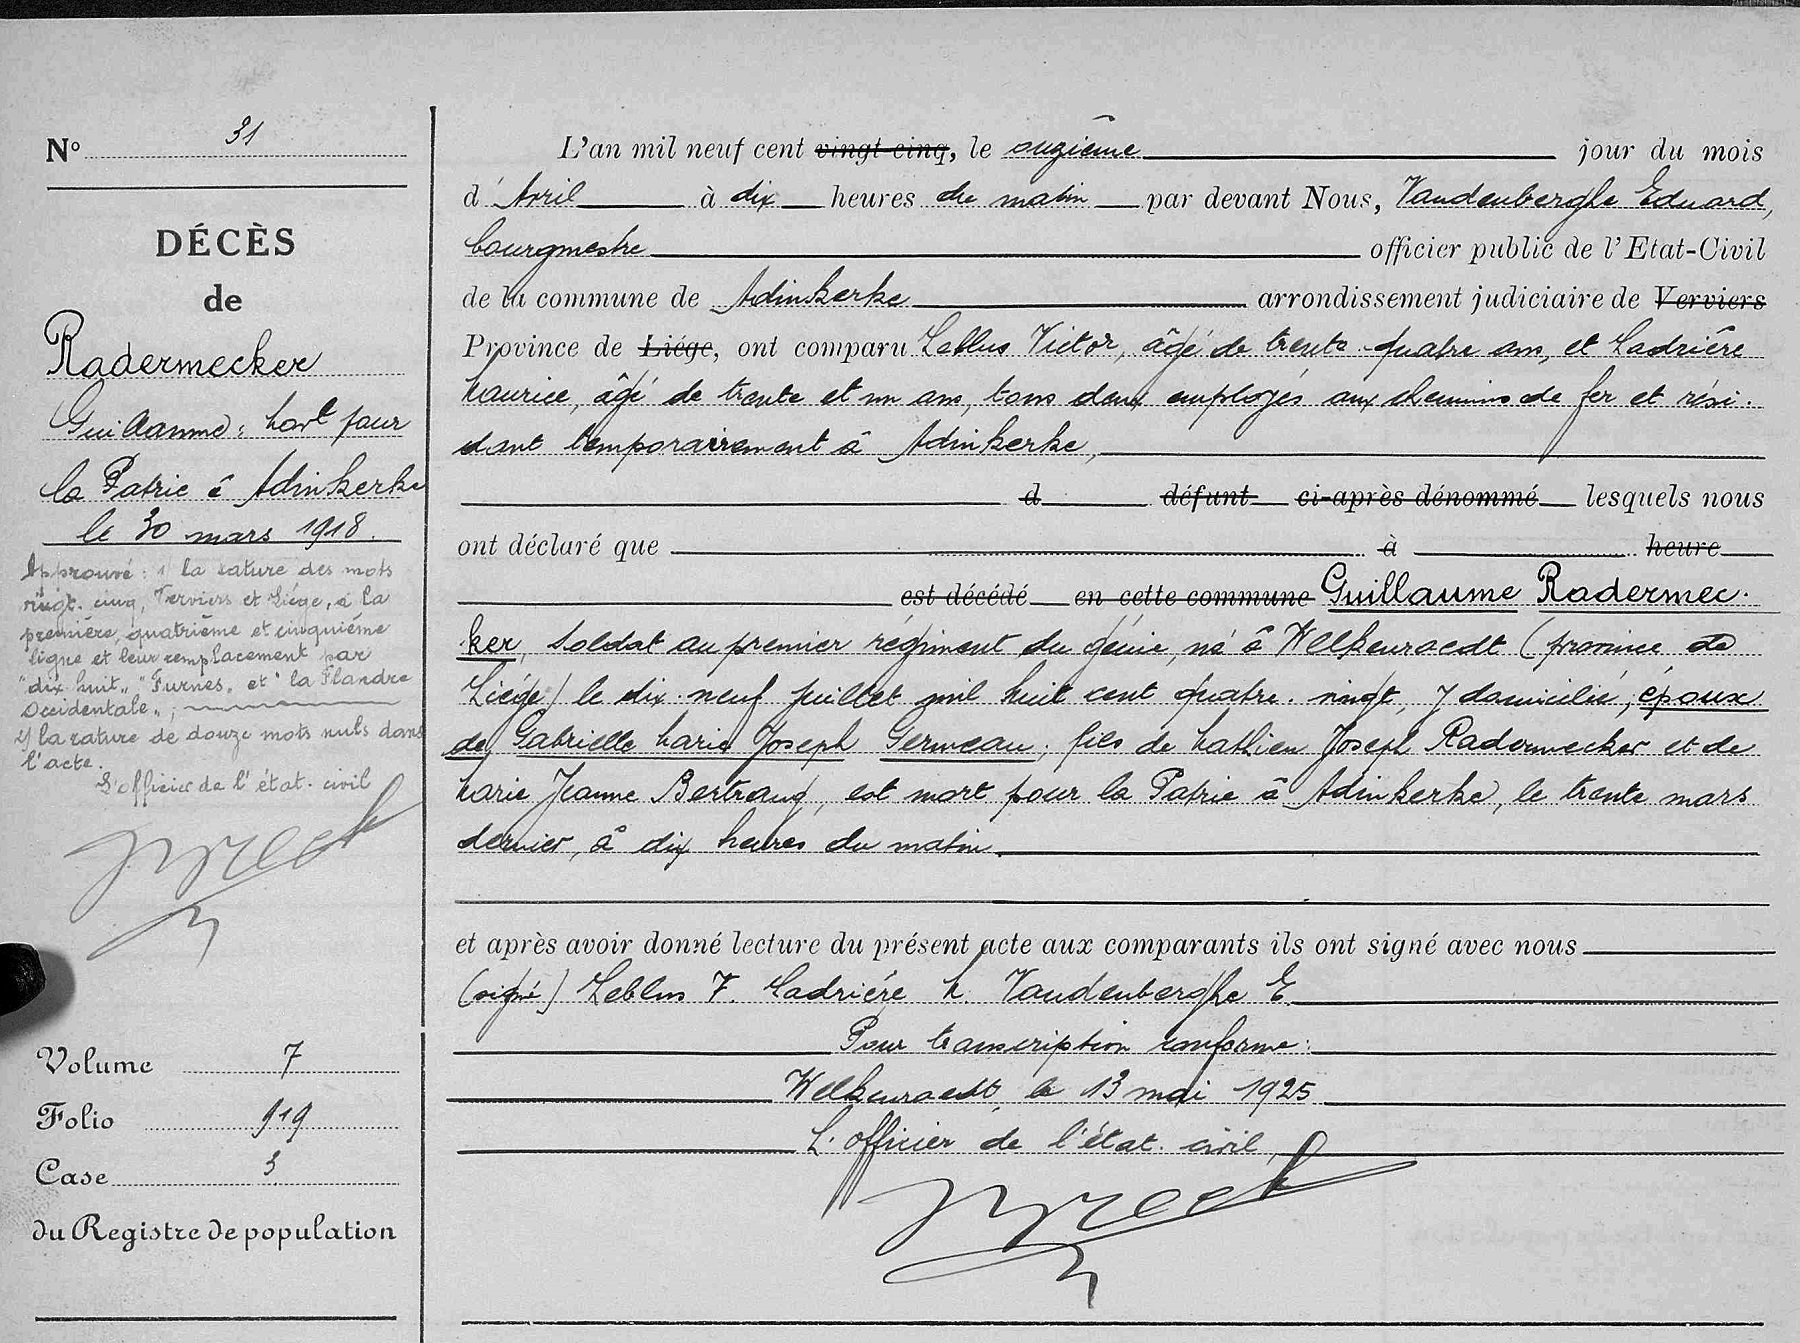 N° 31
DÉCÈS
de
Radermecker
Guillaume: Mort pour
la Patrie à Adinkerke
le 30 mars 1918.
Approuvé: 1) la rature des mots
vingt-cinq, Verviers et Liége, à la
première, quatrième et cinquième
ligne et leur remplacement par
"dix-huit", "Furnes" et "la Flandre
Occidentale";
2) la rature de douze mots nuls dans
l'acte.
L'officier de l'état-civil
Volume 7
Folio 919
Case 3
du Registre de population
L'an mil neuf cent vingt-cinq, le onzième jour du mois
d'Avril à dix heures du matin par devant Nous, Vandenberghe Eduard,
bourgmestre officier public de l'Etat-Civil
de la commune de Adinkerke arrondissement judiciaire de Verviers
Province de Liége, ont comparu Leblus Victor, âgé de trente-quatre ans, et Ladrière
Maurice, âgé de trente et un ans, tous deux employés aux chemins de fer et rési-
dant temporairement à Adinkerke,
d défunt ci-après dénommé lesquels nous
ont déclaré que à heure
est décédé en cette commune Guillaume Radermec-
ker, soldat au premier régiment du génie, né à Welkenraedt (province de
Liége) le dix-neuf juillet mil huit cent quatre-vingt, y domicilié, époux
de Gabrielle Marie Joseph Germeau; fils de Mathieu Joseph Radermecker et de
Marie Jeanne Bertrand, est mort pour la Patrie à Adinkerke, le trente mars
dernier, à dix heures du matin.
et après avoir donné lecture du présent acte aux comparants ils ont signé avec nous
(signé) Leblus V. Ladrière M. Vandenberghe E.
Pour transcription conforme:
Welkenraedt, le 13 mai 1925
L'officier de l'état-civil,